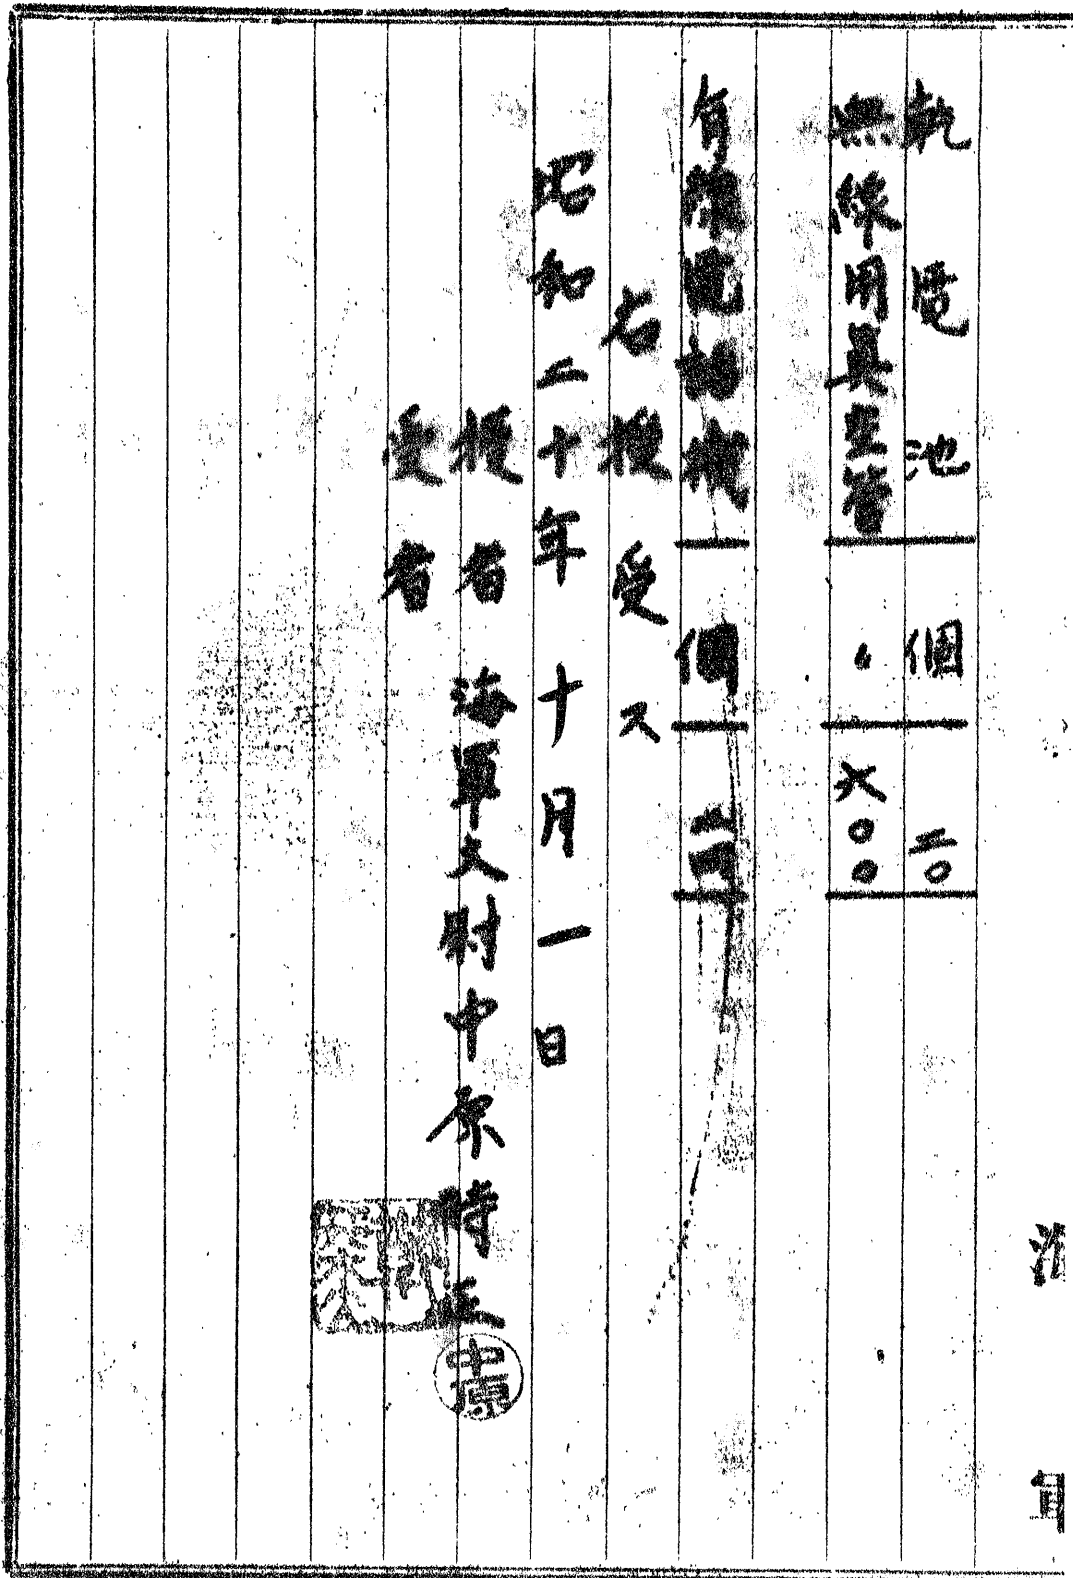 海軍
乾電池 個 二〇
無線用真空管 〃 六〇〇
有線電話機 個 二
右授受ス
昭和二十年十月一日
授者 海軍大尉中原時正 中原
受者